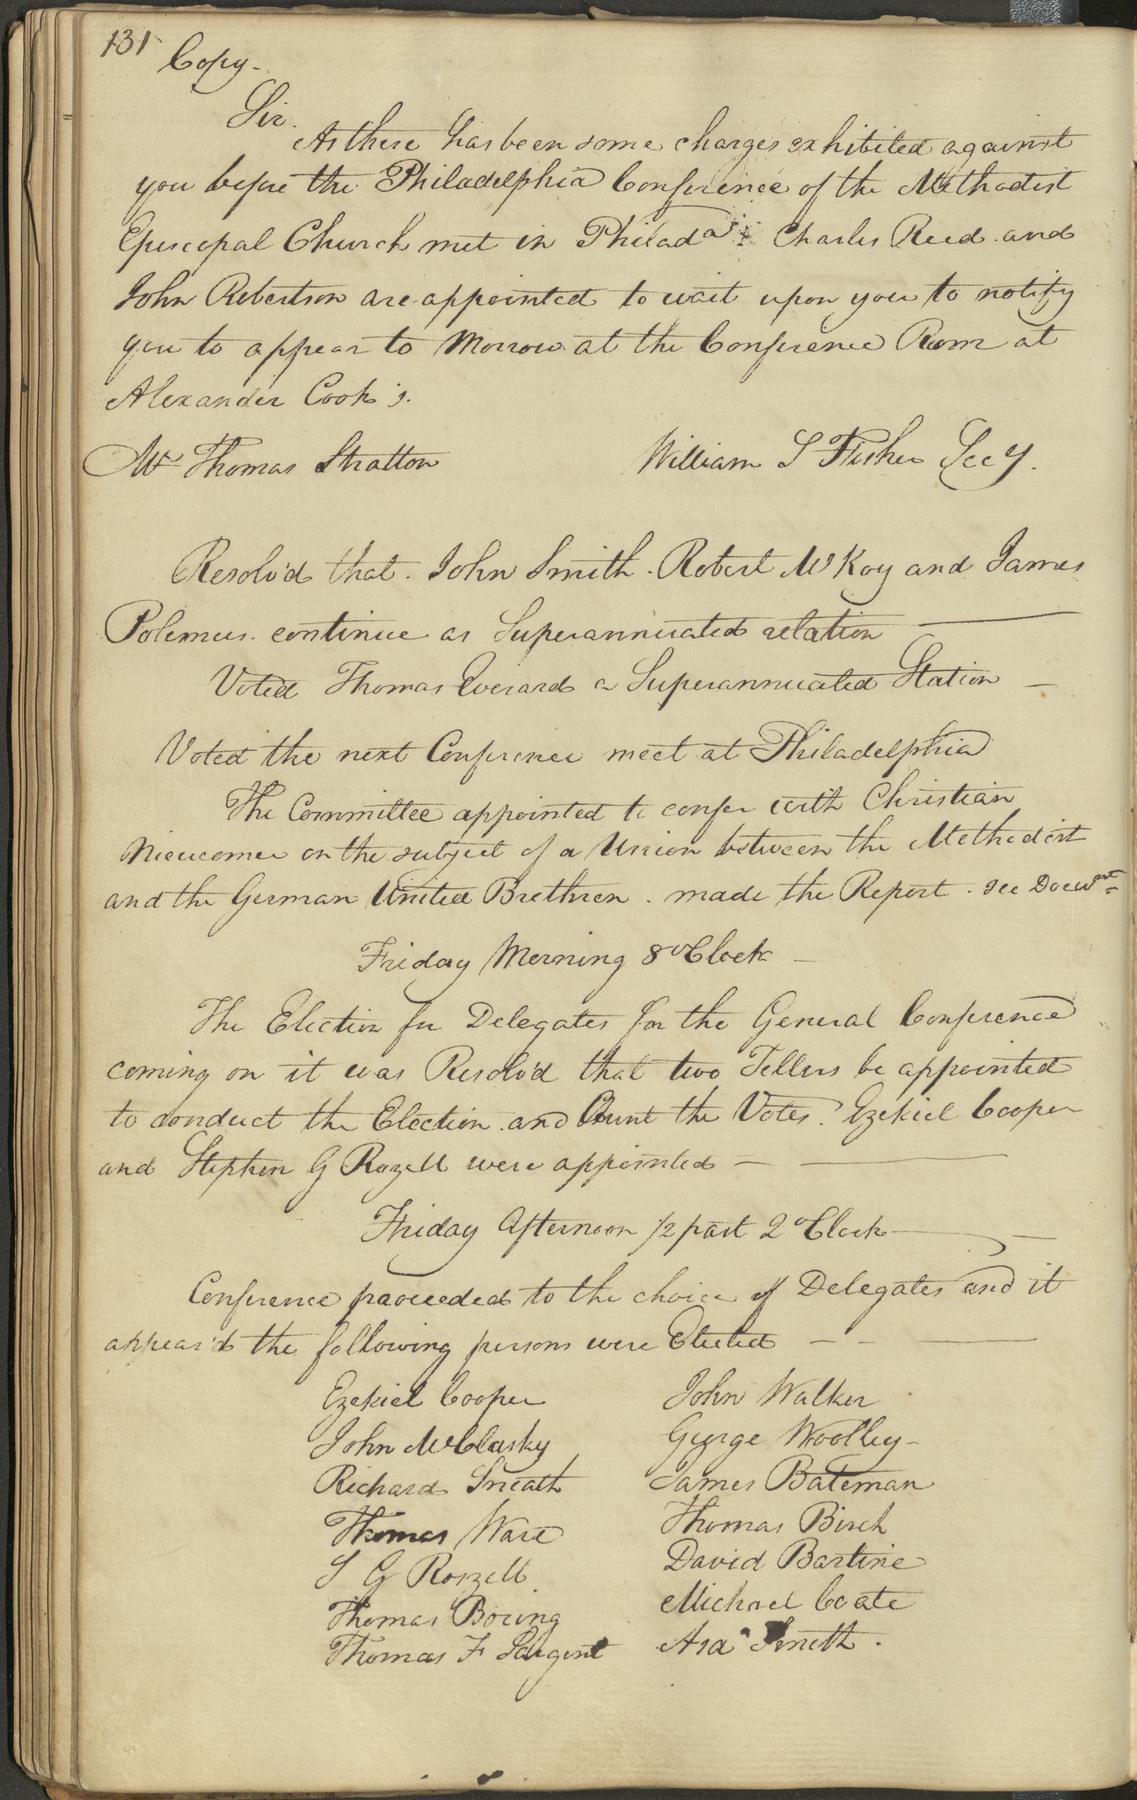 131
Copy-
Sir.
As there has been some charges exhibited against
you before the Philadelphia Conference of the Methodist
Episcopal Church met in Philada: Charles Reed and
John Robertson are appointed to wait upon you to notify
you to appear to Morrow at the Conference Room at
Alexander Cook's.
Mr Thomas Stratton William S Fisher Secy.
Resolv'd that. John Smith. Robert McKoy and James
Polemus. continue as Superannuated relation
Voted Thomas Everard a Superannuated Station
Voted the next Conference meet at Philadelphia
The Committee appointed to confer with Christian
Niewcomer on the subject of a Union between the Methodist
and the German United Brethren. made the Report. see Documt
Friday Morning 8 oClock
The Election for Delegates for the General Conference
coming on it was Resolv'd that two Tellers be appointed
to conduct the Election and Count the Votes. Ezekiel Cooper
and Stephen G Rozell were appointed
Friday Afternoon 1/2 past 2 oClock
Conference proceeded to the choice of Delegates and it
appear'd the following persons were Elected
Ezekiel Cooper John Walker
John McClasky George Woolley-
Richard Sneath James Bateman
Thomas Ware Thomas Birch
S G Roszell David Bartine
Thomas Boring Michael Coate
Thomas F Sargent Asa Smith.